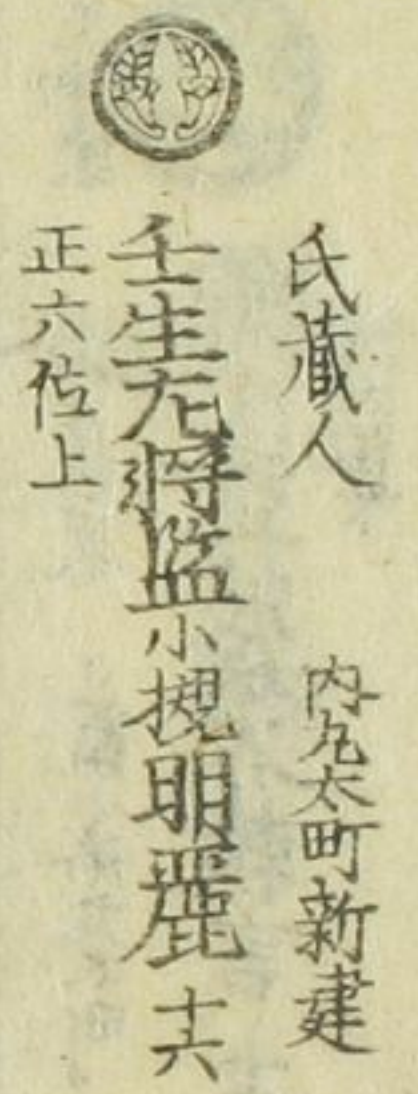 氏藏人　内丸太町新建
壬生左將監小槻明麗　十六
正六位上